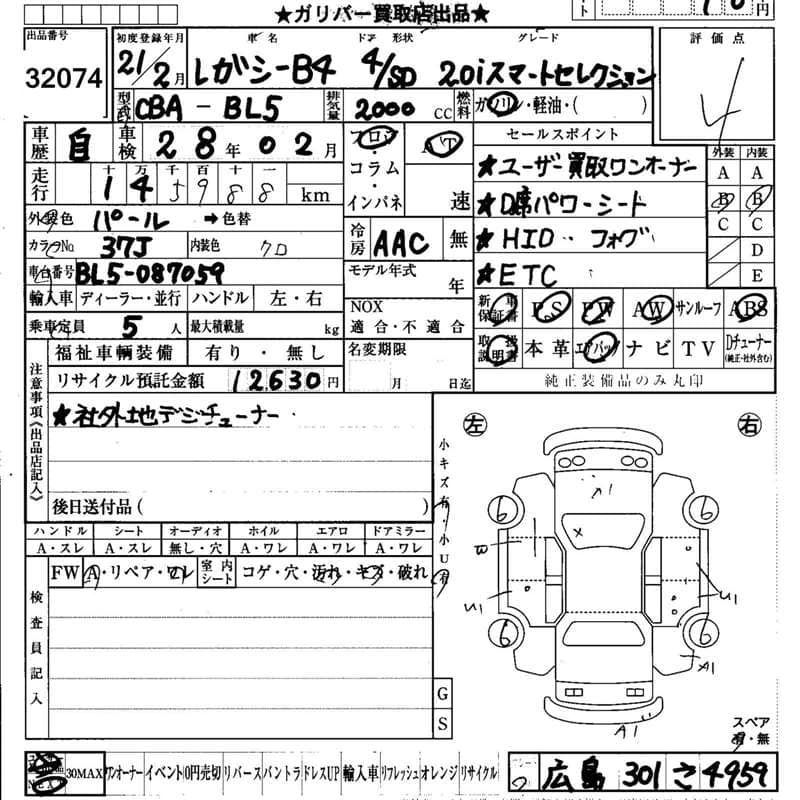 ★ガリバー買取店出品★
円
出品番号
32074
初度登録年月 車名 ドア 形状 グレード
21/2月 レガシーB4 4/SD 2.0iスマートセレクション
評価点
4
型式 CBA-BL5 排気量 2000 CC 燃料 ガソリン・軽油・( )
車歴 自 車検 28年02月
フロア・コラム・インパネ
AT
速
セールスポイント
★ユーザー買取ワンオーナー
★D席パワーシート
★HID フォグ
★ETC
外装 内装
A A
B B
C C
D
E
走行 十 万 千 百 十 一
145988 km
外装色 パール →色替
カラーNo 37J 内装色 クロ
冷房 AAC 無
車台番号 BL5-087059
モデル年式 年
輸入車 ディーラー・並行 ハンドル 左・右
乗車定員 5人 最大積載量 kg
NOX
適合・不適合
新車保証書 P.S PW AW サンルーフ ABS
取扱説明書 本革 エアバッグ ナビ TV Dチューナー(純正・社外含む)
純正装備品のみ丸印
福祉車輌装備 有り・無し
名変期限
月 日迄
リサイクル預託金額 12630円
注意事項《出品店記入》
★社外地デジチューナー
後日送付品( )
小キズ有・小U有
ハンドル シート オーディオ ホイル エアロ ドアミラー
A・スレ A・スレ 無し・穴 A・ワレ A・ワレ A・ワレ
FW A・リペア・ワレ 室内シート コゲ・穴・汚れ・キズ・破れ
検査員記入
G
S
左 右
A1
6 6
×
W
U1 U1
6 6
A1
A1
スペア
有・無
30MAX ワンオーナー イベント 0円売切 リバース バントラ ドレスUP 輸入車 リフレッシュ オレンジ リサイクル
広島 301 さ 4959